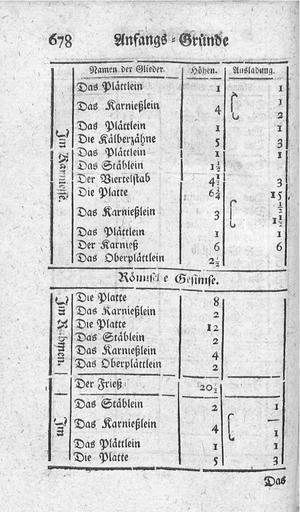 678 Anfangs-Gründe
Namen der Glieder. Höhen. Ausladung.
Im Karnieße.
Das Plättlein 1 1
Das Karnießlein 4 1 2
Das Plättlein 1 1
Die Kälberzähne 5 3
Das Plättlein 1 1
Das Stäblein 1½
Der Viertelstab 4½ 3
Die Platte 6¾ 15
Das Karnießlein 3 ½ 1½
Das Plättlein 1 1
Der Karnieß 6 6
Das Oberplättlein 2½
Römische Gesimse.
Im Rahmen.
Die Platte 8
Das Karnießlein 2
Die Platte 12
Das Stäblein 2
Das Karnießlein 4
Das Oberplättlein 2
Der Frieß 20½
Im
Das Stäblein 2 1
Das Karnießlein 4 — 1
Das Plättlein 1 1
Die Platte 5 3
Das